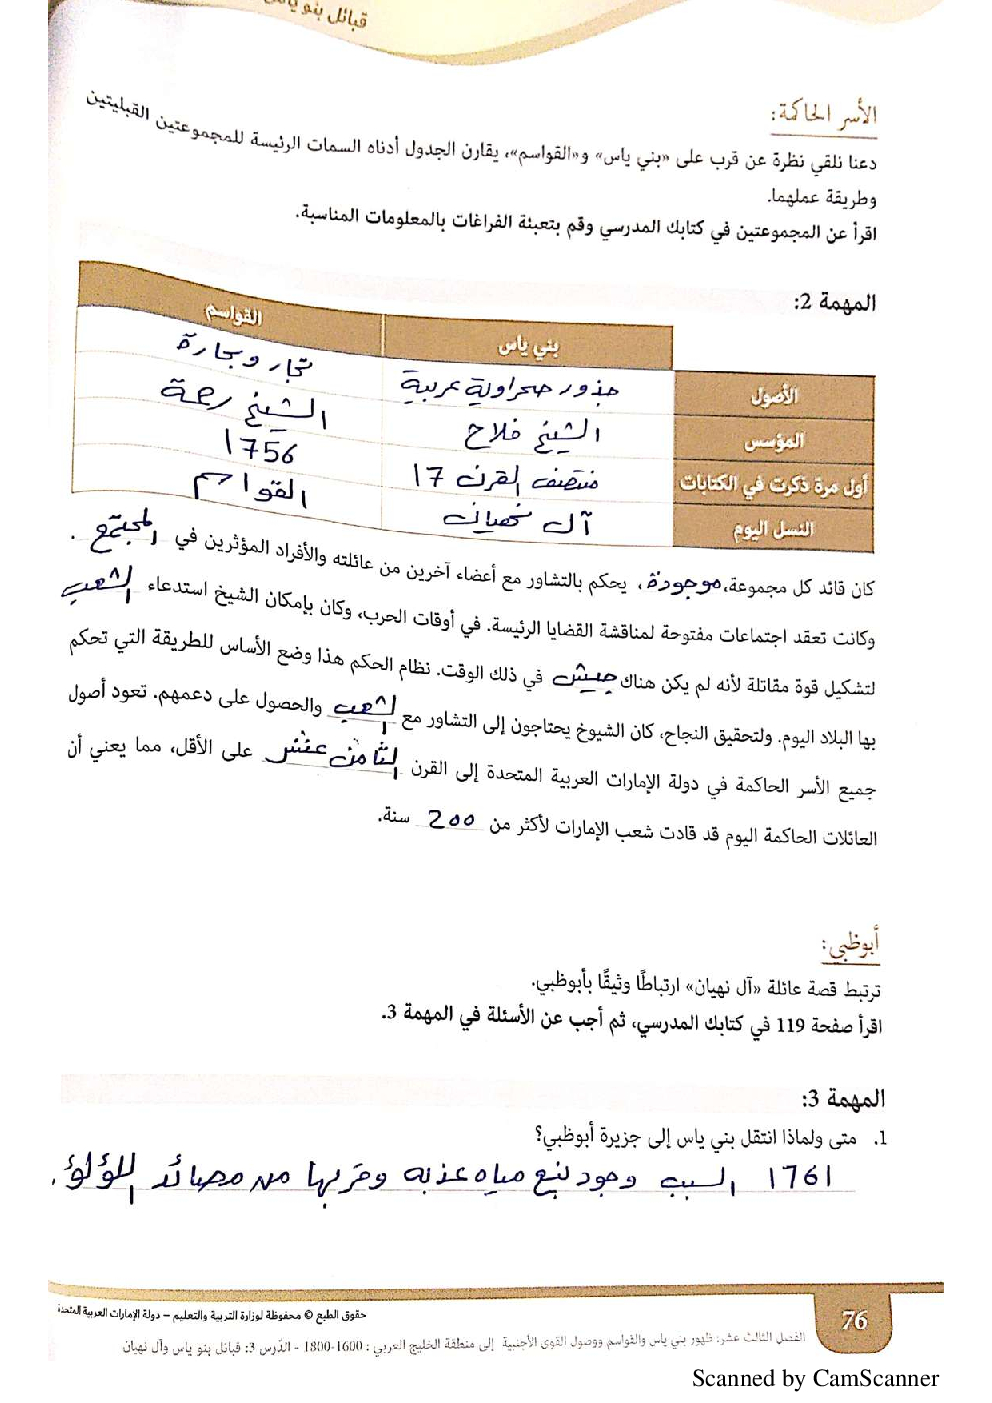 قبائل بنو ياس
الأسر الحاكمة:
دعنا نلقي نظرة عن قرب على «بني ياس» و«القواسم»، يقارن الجدول أدناه السمات الرئيسة للمجموعتين القبليتين
وطريقة عملهما.
اقرأ عن المجموعتين في كتابك المدرسي وقم بتعبئة الفراغات بالمعلومات المناسبة.
المهمة 2:
بني ياس القواسم
الأصول جذور صحراوية عربية تجار وبحارة
المؤسس الشيخ فلاح الشيخ رحمة
أول مرة ذكرت في الكتابات منتصف القرن 17 1756
النسل اليوم آل نهيان القواسم
كان قائد كل مجموعة، موجودة، يحكم بالتشاور مع أعضاء آخرين من عائلته والأفراد المؤثرين في المجتمع.
وكانت تعقد اجتماعات مفتوحة لمناقشة القضايا الرئيسة. في أوقات الحرب، وكان بإمكان الشيخ استدعاء الشعب
لتشكيل قوة مقاتلة لأنه لم يكن هناك جيش في ذلك الوقت. نظام الحكم هذا وضع الأساس للطريقة التي تحكم
بها البلاد اليوم. ولتحقيق النجاح، كان الشيوخ يحتاجون إلى التشاور مع الشعب والحصول على دعمهم. تعود أصول
جميع الأسر الحاكمة في دولة الإمارات العربية المتحدة إلى القرن الثامن عشر على الأقل، مما يعني أن
العائلات الحاكمة اليوم قد قادت شعب الإمارات لأكثر من 200 سنة.
أبوظبي:
ترتبط قصة عائلة «آل نهيان» ارتباطًا وثيقًا بأبوظبي.
اقرأ صفحة 119 في كتابك المدرسي، ثم أجب عن الأسئلة في المهمة 3.
المهمة 3:
1. متى ولماذا انتقل بني ياس إلى جزيرة أبوظبي؟
1761 السبب وجود نبع مياه عذبه وقربها من مصائد اللؤلؤ.
حقوق الطبع © محفوظة لوزارة التربية والتعليم – دولة الإمارات العربية المتحدة
76
الفصل الثالث عشر: ظهور بني ياس والقواسم ووصول القوى الأجنبية إلى منطقة الخليج العربي: 1600-1800 - الدّرس 3: قبائل بنو ياس وآل نهيان
Scanned by CamScanner